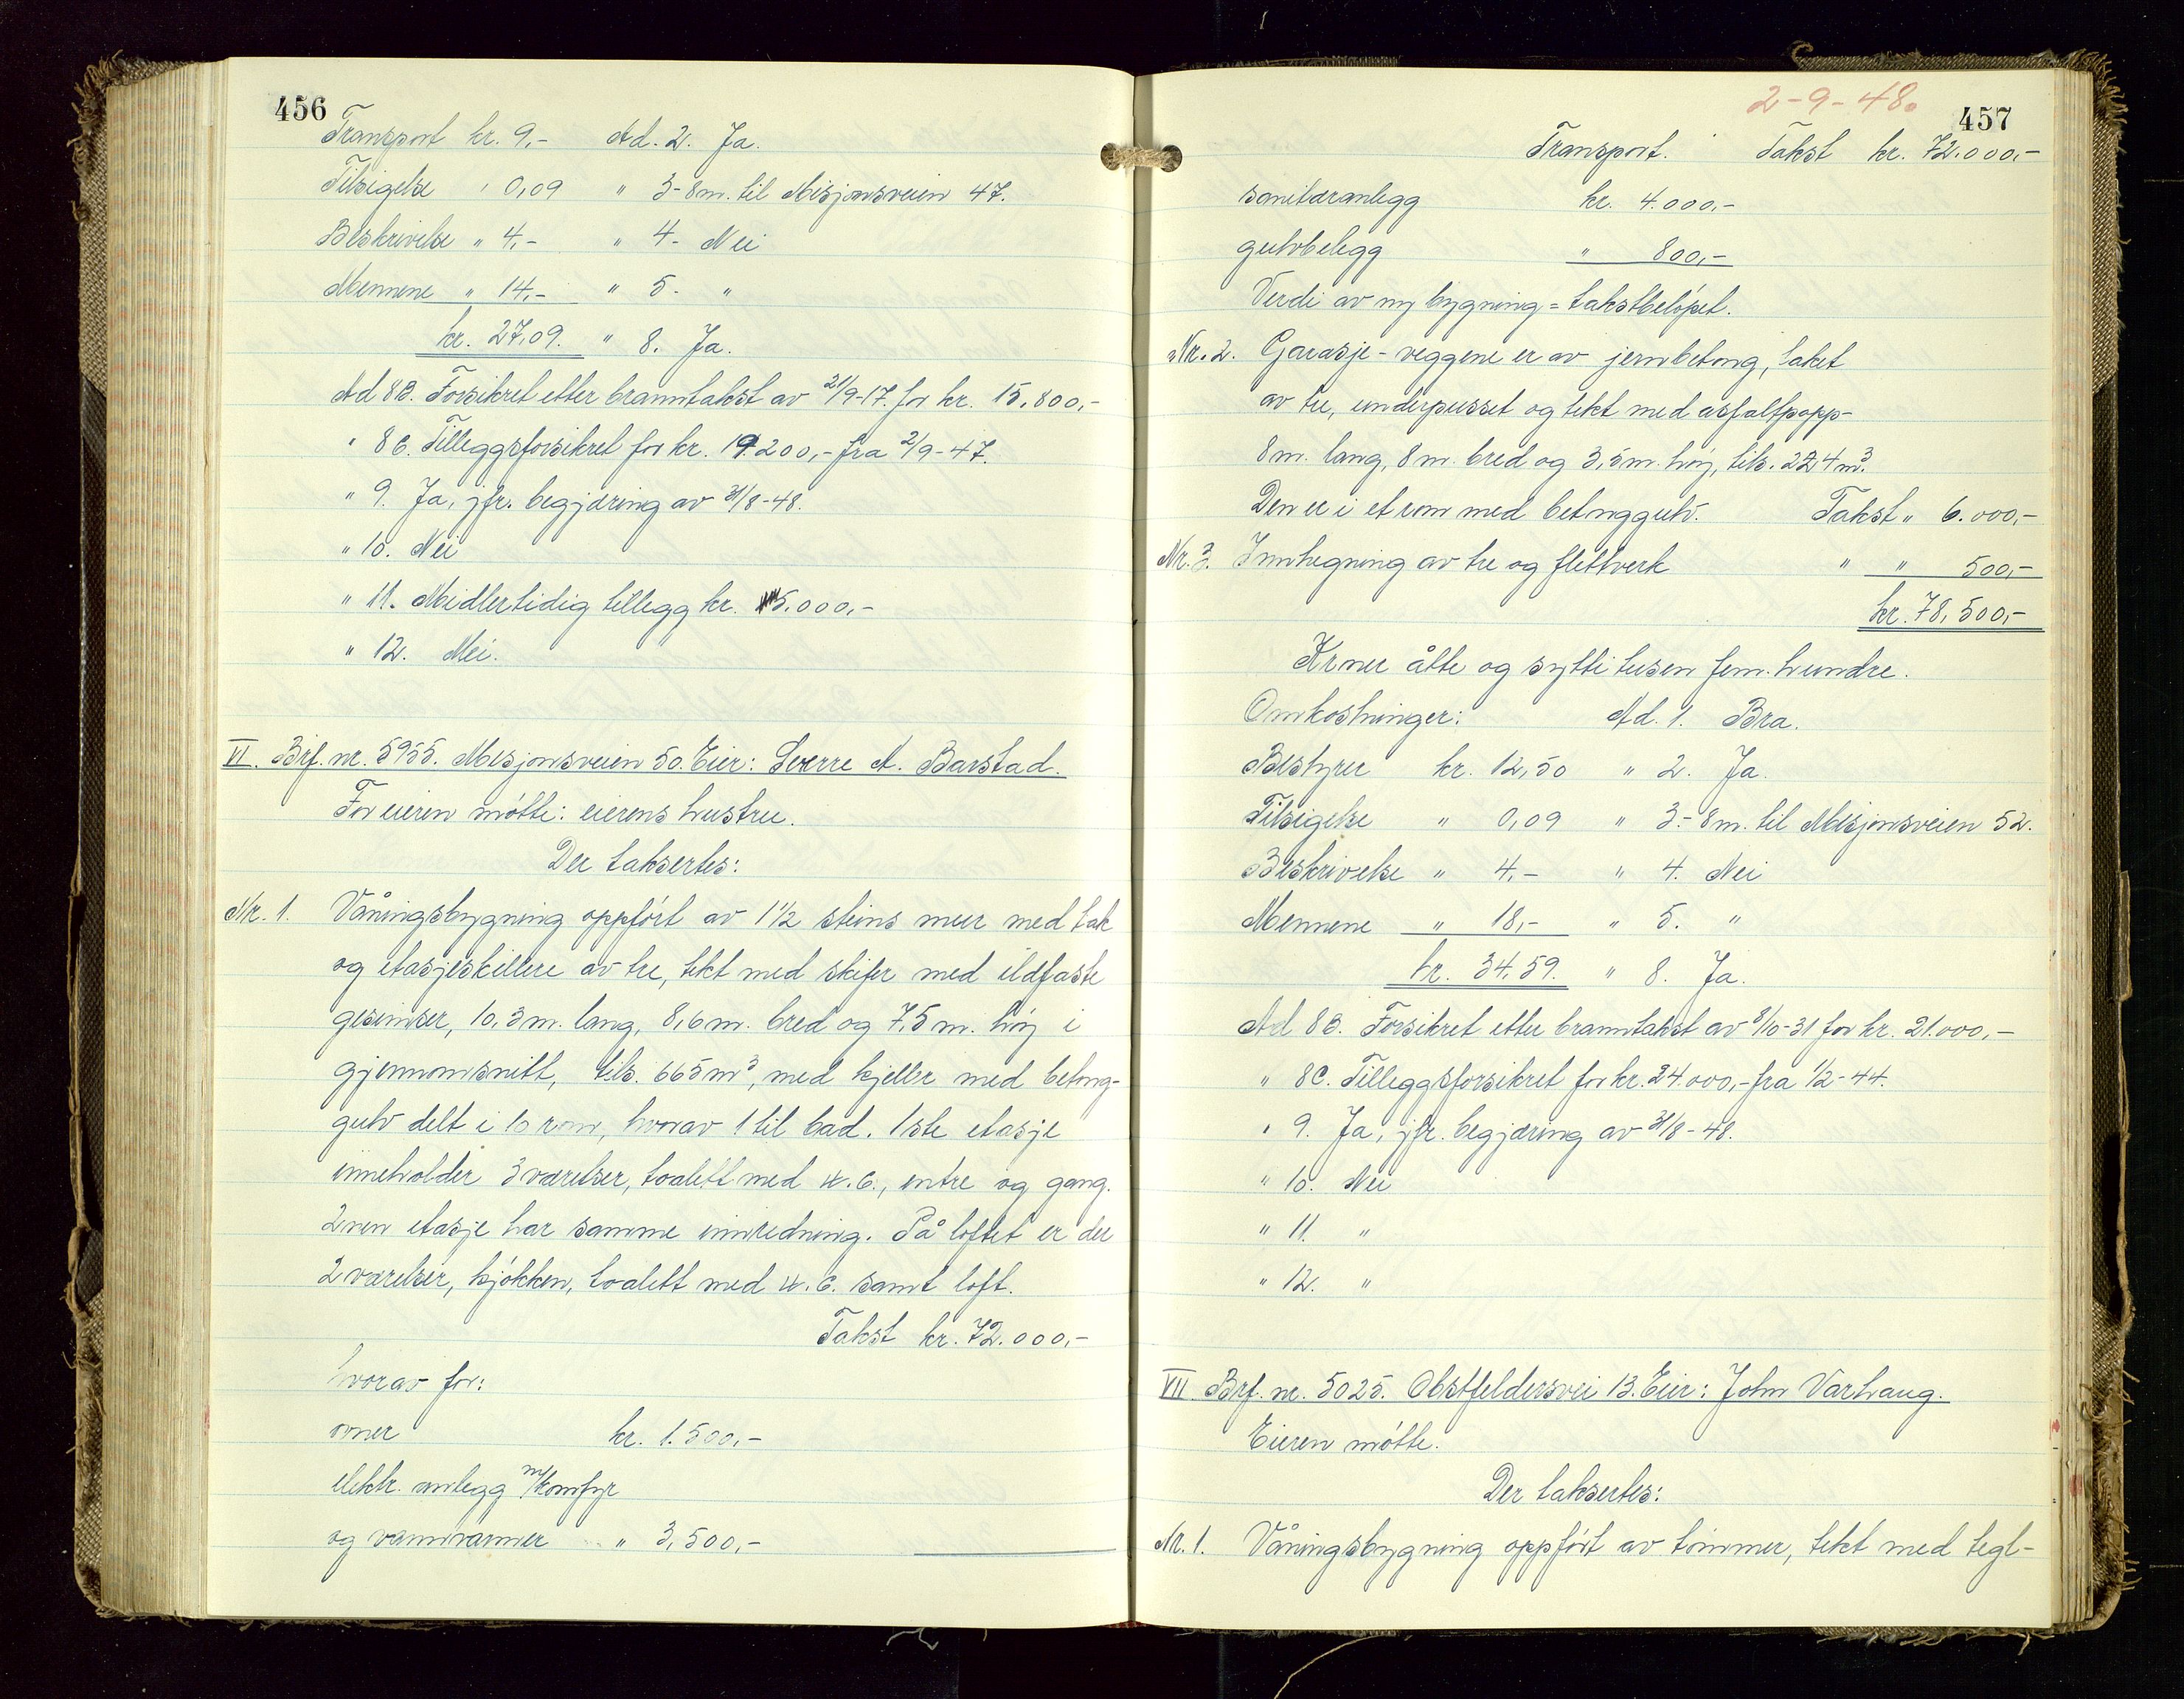 456
Transport kr. 9,- Ad. 2. Ja.
Tilsigelse " 0,09 " 3- 8m. til Misjonsveien 47.
Beskrivelse " 4,- " 4- Nei
Mennene " 14,- " 5- "
kr. 27,09. " 8. Ja.
Ad 8B. Forsikret etter branntakst av 21/9-17. for kr. 15.800,-
" 8C. Tilleggsforsikret for kr. 19200,- fra 2/9-47.
" 9. Ja, jfr. begjæring av 31/8-48.
" 10. Nei
" 11. Midlertidig tillegg kr. 5.000,-
" 12. Nei.
VI. Brf. nr. 5955. Misjonsveien 50. Eier: Sverre A. Barstad.
For eieren møtte: eierens hustru.
Der taksertes:
Nr. 1. Våningsbygning oppført av 1 1/2 steins mur med tak
og etasjeskillere av tre, tekt med skifer med ildfaste
gesimser, 10,3 m. lang, 8,6 m. bred og 7,5 m. høj i
gjennomsnitt, tils. 665 m³, med kjeller med betong-
gulv delt i 10 rom, hvorav 1 til bad. 1ste etasje
inneholder 3 værelser, toalett med w.c., entre og gang.
2nen etasje har samme innredning. På loftet er der
2 værelser, kjøkken, toalett med w.c. samt loft.
Takst kr. 72.000,-
hvorav for:
ovner kr. 1.500,-
elektr. anlegg m/komfyr
og vannvarmer " 3,500,-
2-9-48.
457
Transport. Takst kr. 72.000,-
sanitæranlegg kr. 4.000,-
gulvbelegg " 800,-
Verdi av ny bygning = takstbeløpet.
Nr. 2. Garasje - veggene er av jernbetong, taket
av tre, underpusset og tekt med asfaltpapp-
8 m. lang, 8 m. bred og 3,5 m. høj, tils. 224 m³.
Den er i et rom med betonggulv. Takst " 6.000,-
Nr. 3. Innhegning av tre og flettverk " " 500,-
kr. 78,500,-
Kroner åtte og sytti tusen fem hundre.
Omkostninger: Ad. 1. Bra.
Bestyrer kr. 12,50 " 2. Ja.
Tilsigelse " 0,09 " 3.- 8m. til Misjonsveien 52.
Beskrivelse " 4,- " 4. Nei
Mennene " 18,- " 5. "
kr. 34,59. " 8. Ja.
Ad 8B. Forsikret etter branntakst av 8/10-31 for kr. 21.000,-
" 8C. Tilleggsforsikret for kr. 24.000,- fra 1/2-44.
" 9. Ja, jfr. begjæring av 31/8-48.
" 10. Nei
" 11. "
" 12. "
VII. Brf. nr. 5025. Obstfeldersvei 13. Eier: John Varhaug.
Eieren møtte.
Der taksertes:
Nr. 1. Våningsbygning oppført av tømmer, tekt med tegl-